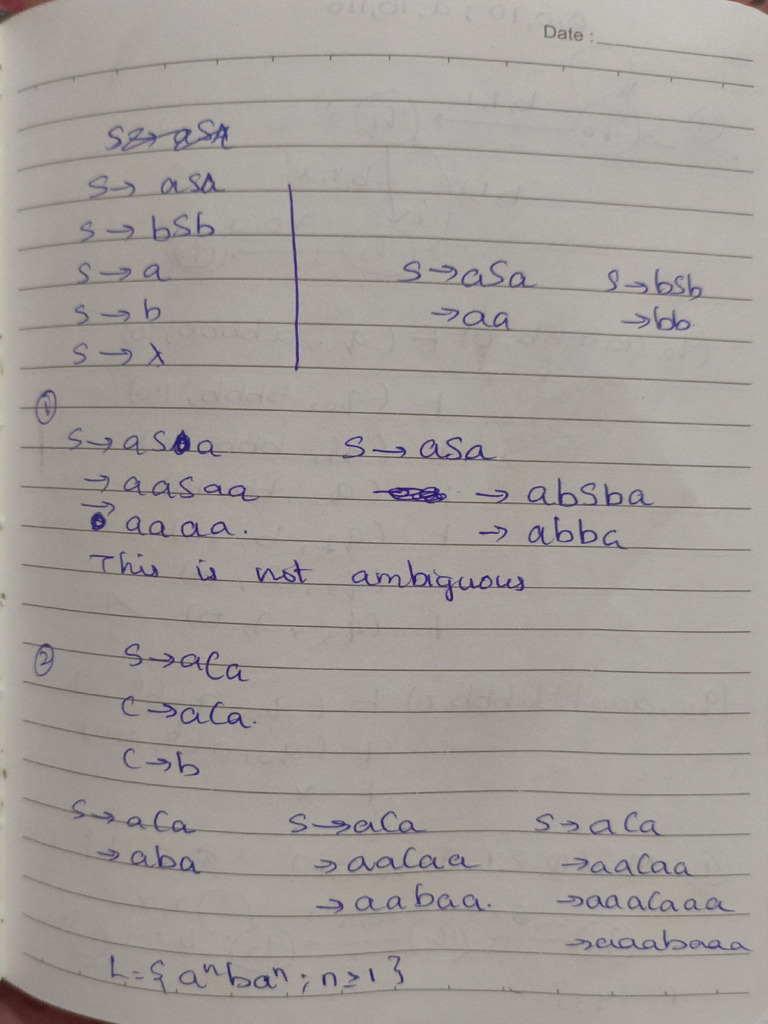 Date :
S → aSA
S → aSa
S → bSb
S → a
S → b
S → λ
S → aSa
→ aa
S → bSb
→ bb
①
S → aSa
→ aaSaa
→ aaaa.
S → aSa
→ abSba
→ abba
This is not ambiguous
②
S → aCa
C → aCa.
C → b
S → aCa
→ aba
S → aCa
→ aaCaa
→ aabaa.
S → aCa
→ aaCaa
→ aaaCaaa
→ aaabaaa
L = { aⁿbaⁿ ; n ≥ 1 }